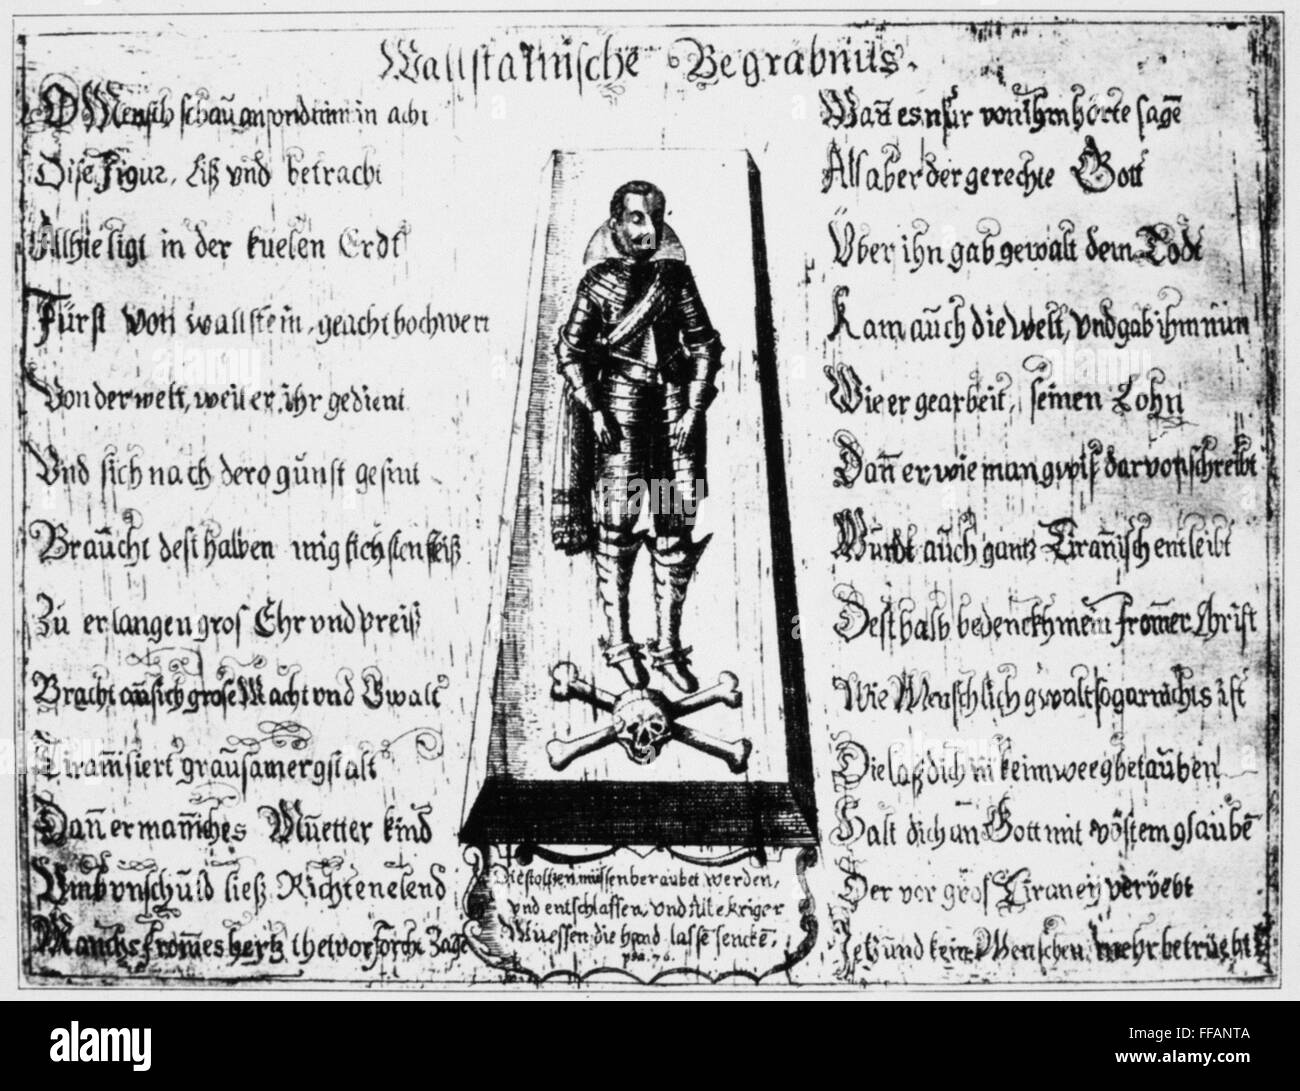 Wallstainische Begrabnus.
O Mensch schau an und nim in acht
Dise Figur, liß vnd betracht
Alhie ligt in der kuelen Erdt
Fürst von wallstein, geacht hochwert
Von der welt, weil er, ihr gedient
Vnd sich nach dero gunst gesint
Braucht desthalben miglichsten fleiß
Zu erlangen gros Ehr vnd preiß
Bracht an sich grose Macht vnd Gwalt
Tiranisiert grausamer gstalt
Dan er maniches Muetter kind
Vmb vnschuld ließ Richten elend
Manchs fromes hertz thet vor forcht Zage
Wan es nur von Ihm hörte sagē
Als aber der gerechte Gott
Über ihn gab gewalt dem Todt
Kam auch die welt, vnd gab ihm nun
Wie er gearbeit, seinen Lohn
Dan er, wie man gwiß darvon schreibt
Wurdt auch gantz Tiranisch entleibt
Desthalb bedenckh mein fromer Christ
Wie Menschlich gwalt so gar nichts ist
Die laß dich in keim weeg betauben
Halt dich an Gott mit vöstem glaubē
Der vor gros Tiraney veruebt
Jetzund kein Menschen mehr betruebt
Die stoltzen müssen beraubet werden,
vnd entschlaffen, vnd Alle Kriger
Muessen die hand lasse sencke,
psa. 76.
alamy
a
alamy stock photo
Image ID: FFANTA
www.alamy.com